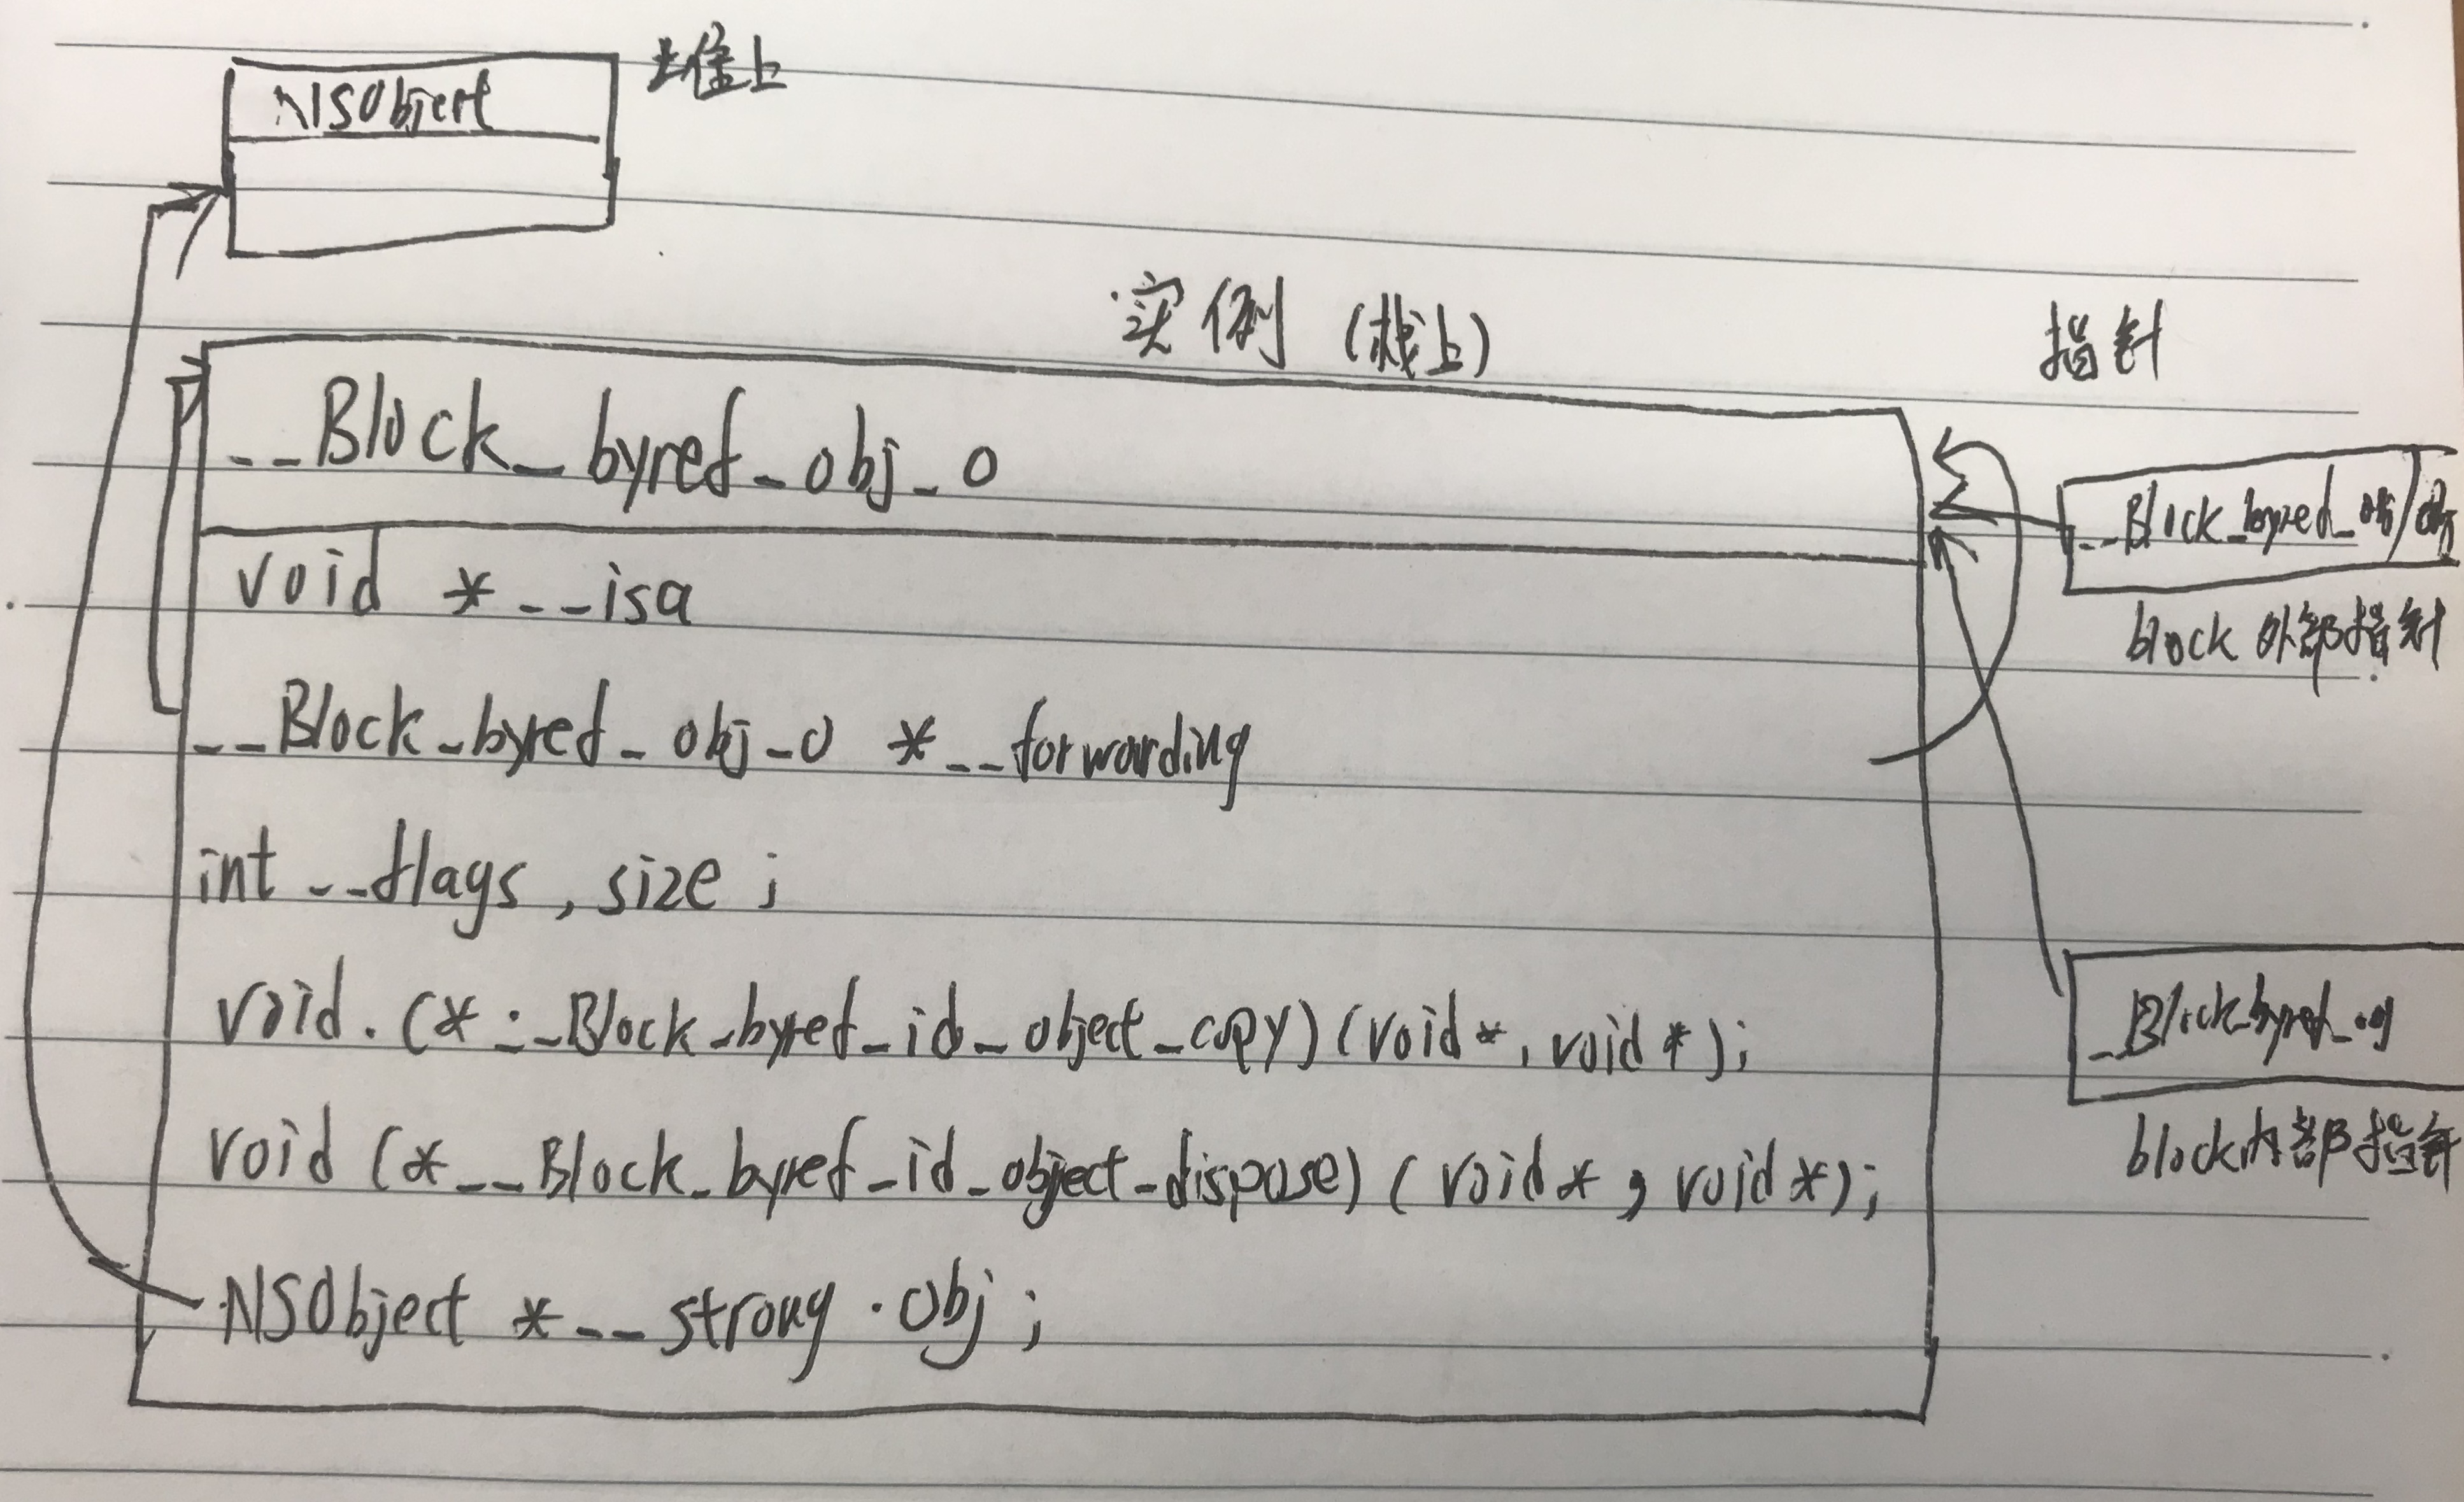 NSObject
堆上
实例 (栈上)
指针
__Block_byref_obj_0
void *__isa
__Block_byref_obj_0 *__forwarding
int __flags, size;
void (*__Block_byref_id_object_copy)(void*, void*);
void (*__Block_byref_id_object_dispose)(void*, void*);
NSObject *__strong obj;
__Block_byref_obj
block 外部指针
_Block_byref_obj
block内部指针